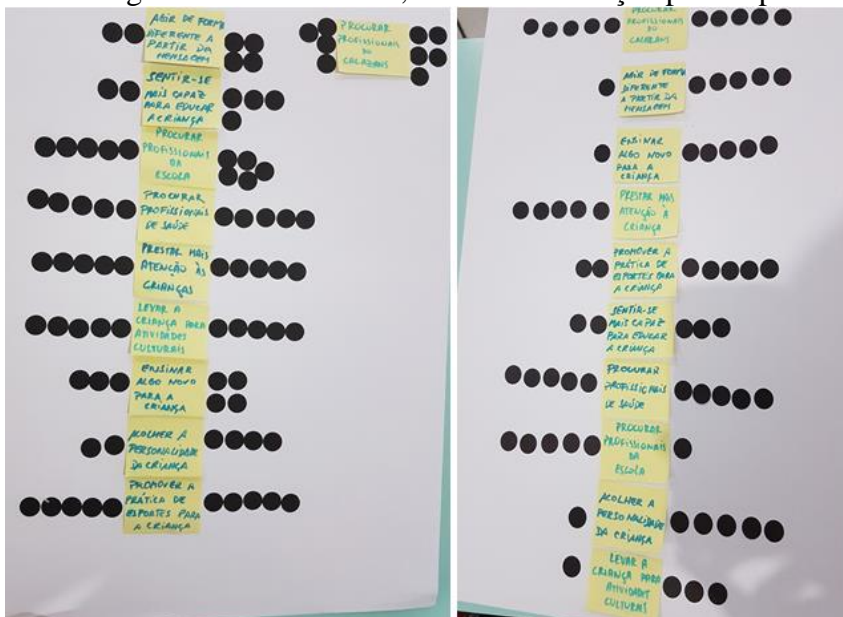 AGIR DE FORMA
DIFERENTE A
PARTIR DA
MENSAGEM
SENTIR-SE
MAIS CAPAZ
PARA EDUCAR
A CRIANÇA
PROCURAR
PROFISSIONAIS
DA
ESCOLA
PROCURAR
PROFISSIONAIS
DE SAÚDE
PRESTAR MAIS
ATENÇÃO ÀS
CRIANÇAS
LEVAR A
CRIANÇA PARA
ATIVIDADES
CULTURAIS
ENSINAR
ALGO NOVO
PARA A
CRIANÇA
ACOLHER A
PERSONALIDADE
DA CRIANÇA
PROMOVER A
PRÁTICA DE
ESPORTES PARA
A CRIANÇA
PROCURAR
PROFISSIONAIS
DO
CACAZANS
PROCURAR
PROFISSIONAIS
DO
CACAZANS
AGIR DE FORMA
DIFERENTE
A PARTIR DA
MENSAGEM
ENSINAR
ALGO NOVO
PARA A
CRIANÇA
PRESTAR MAIS
ATENÇÃO À
CRIANÇA
PROMOVER A
PRÁTICA DE
ESPORTES PARA
A CRIANÇA
SENTIR-SE
MAIS CAPAZ
PARA EDUCAR
A CRIANÇA
PROCURAR
PROFISSIONAIS
DE SAÚDE
PROCURAR
PROFISSIONAIS
DA
ESCOLA
ACOLHER A
PERSONALIDADE
DA CRIANÇA
LEVAR A
CRIANÇA PARA
ATIVIDADES
CULTURAIS